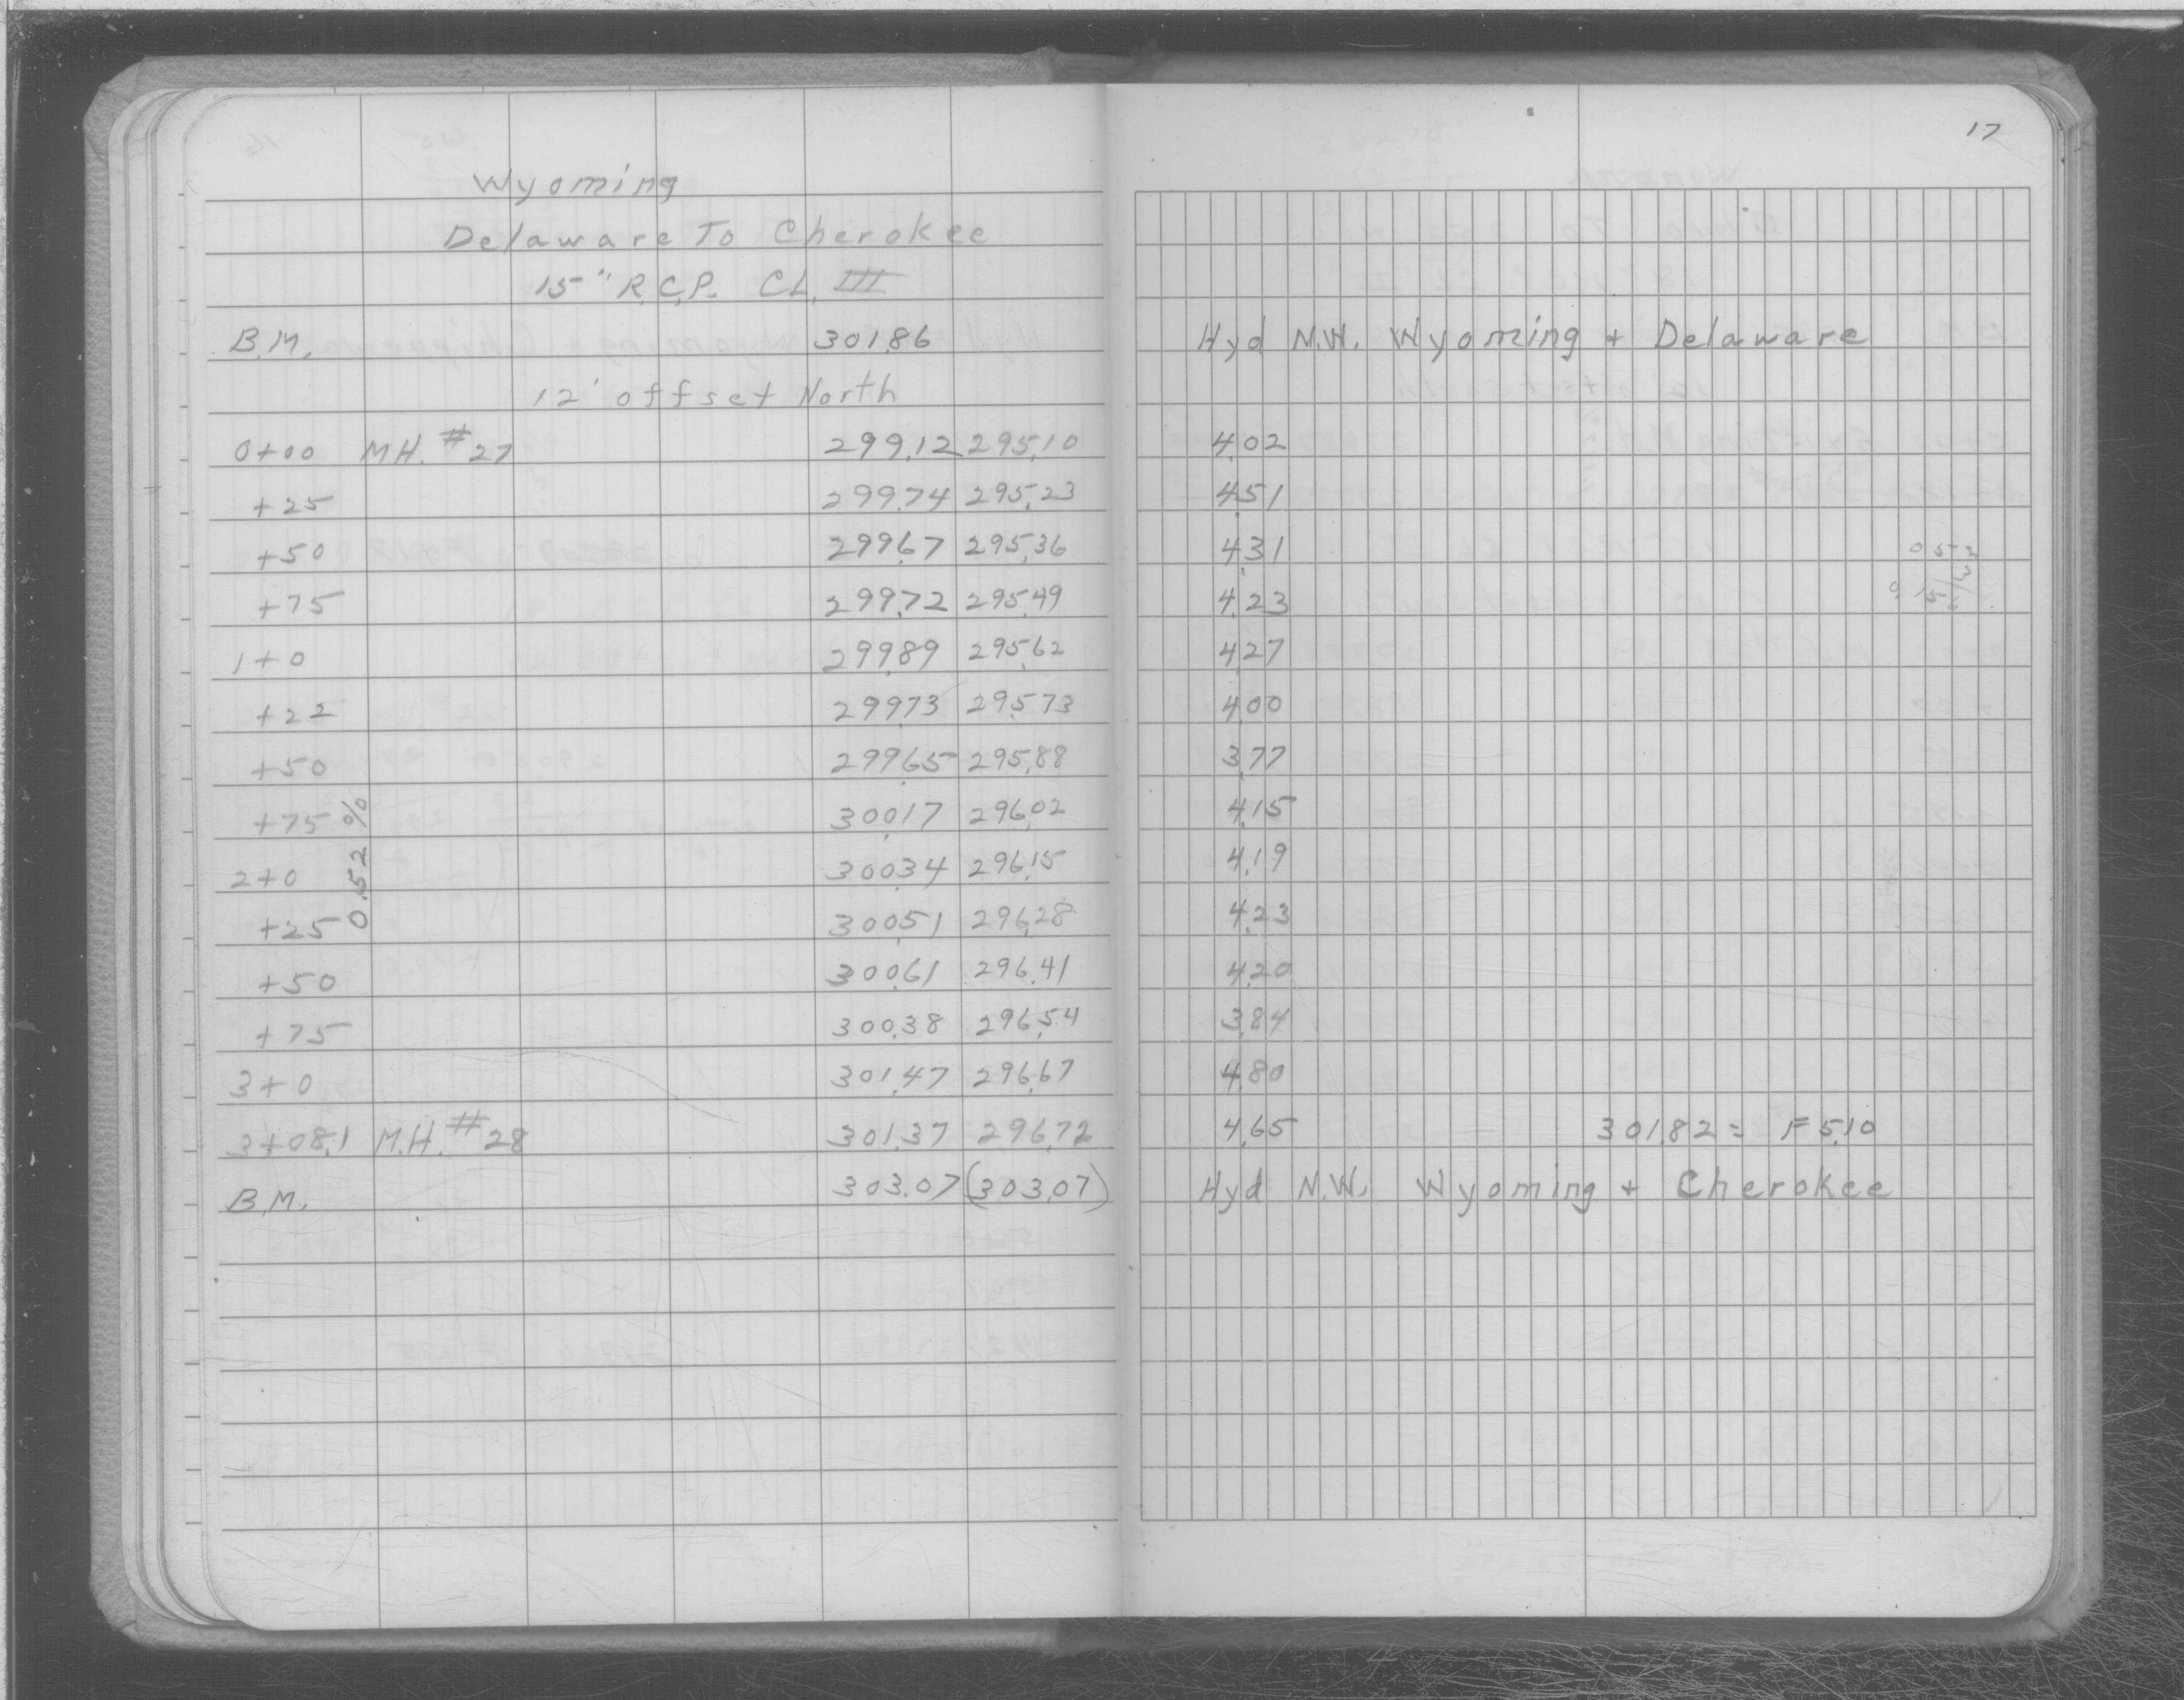 17
Wyoming
Delaware To Cherokee
15" R.C.P. CL. III
B.M. 301.86 Hyd N.W. Wyoming + Delaware
12' offset North
0+00 M.H. #27 299.12 295.10 4.02
+25 299.74 295.23 4.51
+50 299.67 295.36 4.31
+75 299.72 295.49 4.23
1+0 299.89 295.62 4.27
+22 299.73 295.73 4.00
+50 299.65 295.88 3.77
+75 300.17 296.02 4.15
2+0 300.34 296.15 4.19
+25 300.51 296.28 4.23
+50 300.61 296.41 4.20
+75 300.38 296.54 3.84
3+0 301.47 296.67 4.80
3+08.1 M.H. #28 301.37 296.72 4.65 301.82 = F 5.10
B.M. 303.07 (303.07) Hyd N.W. Wyoming + Cherokee
0.52 %